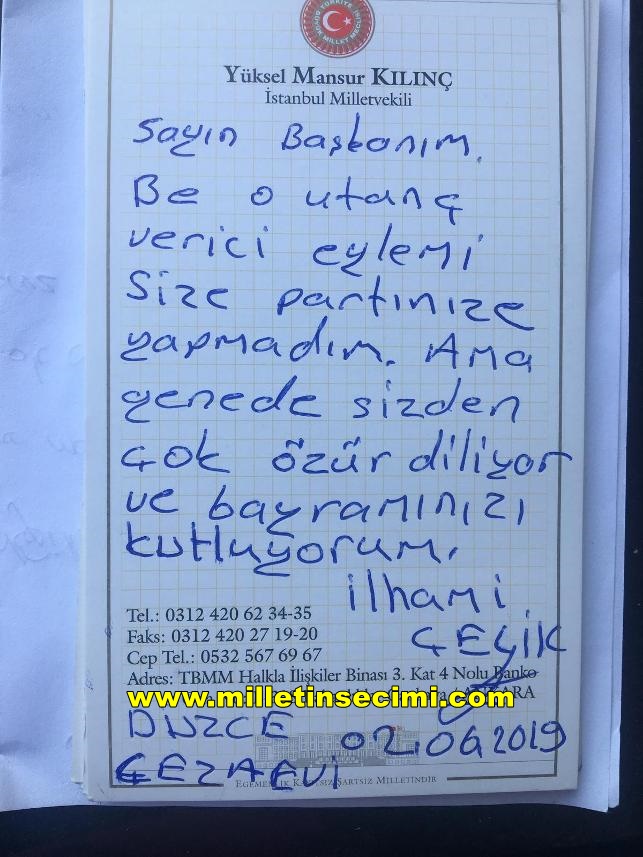 TÜRKİYE BÜYÜK MİLLET MECLİSİ
Yüksel Mansur KILINÇ
İstanbul Milletvekili
Sayın Başkanım.
Be o utanç
verici eylemi
Size partinize
yapmadım. Ama
genede sizden
çok özür diliyor
ve bayramınızı
kutluyorum.
ilhami
ÇELİK
Tel.: 0312 420 62 34-35
Faks: 0312 420 27 19-20
Cep Tel.: 0532 567 69 67
Adres: TBMM Halkla İlişkiler Binası 3. Kat 4 Nolu Banko
ANKARA
www.milletinsecimi.com
DUZCE
02.06.2019
CEZAEVi
EGEMENLİK KAYITSIZ ŞARTSIZ MİLLETİNDİR